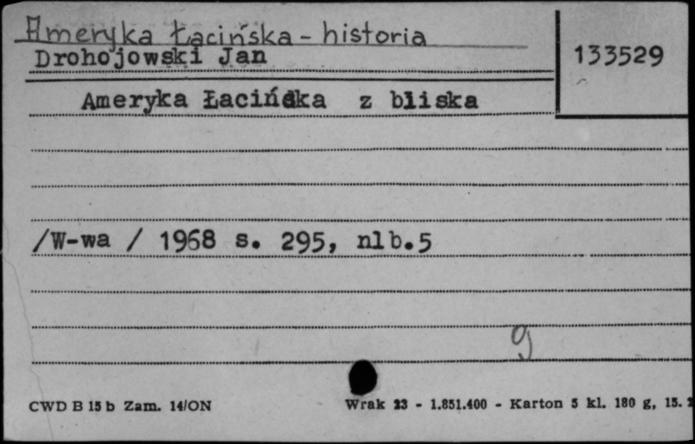 Ameryka Łacińska - historia
Drohojowski Jan
133529
Ameryka Łacińska z bliska
/W-wa / 1968 s. 295, nlb.5
g
CWD B 15 b Zam. 14/ON
Wrak 23 - 1.851.400 - Karton 5 kl. 180 g, 15.